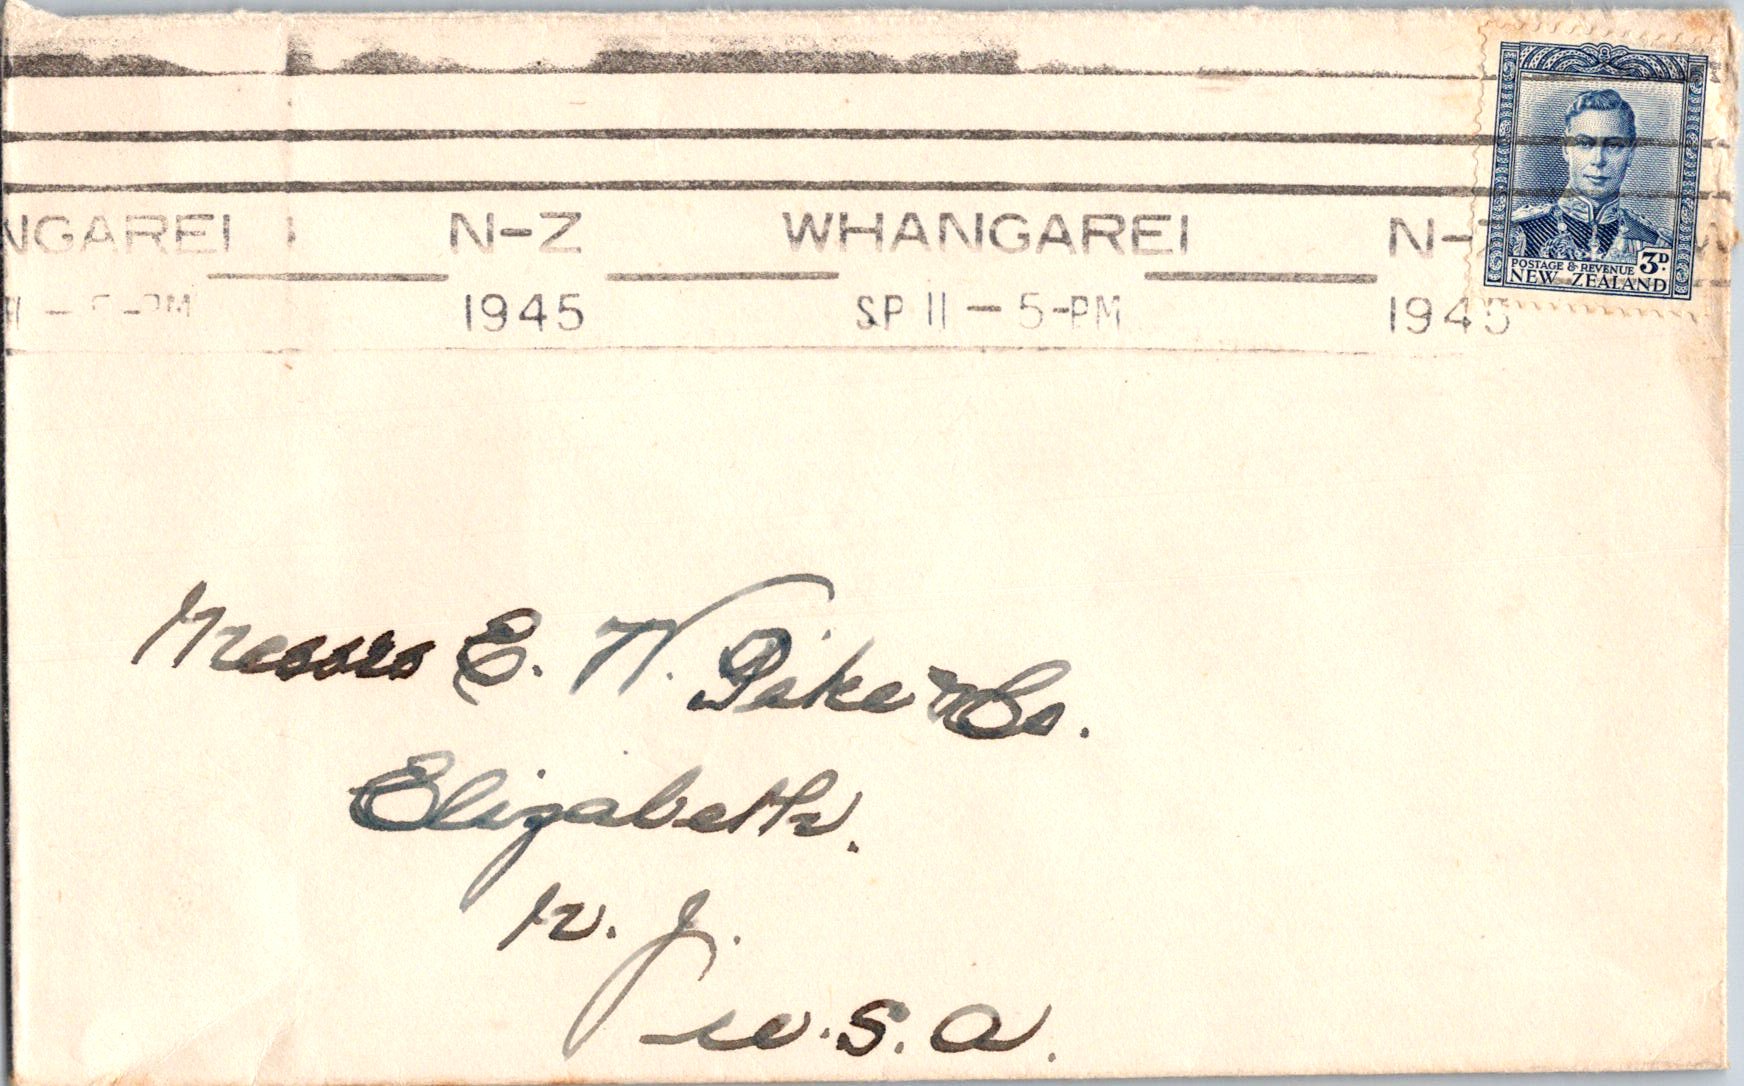 NGAREI N-Z WHANGAREI N-Z W
1945 SP 11 - 5-PM 1945
POSTAGE & REVENUE 3D.
NEW ZEALAND
Messrs E. W. Pike & Co.
Elizabeth.
N. J.
U.S.A.